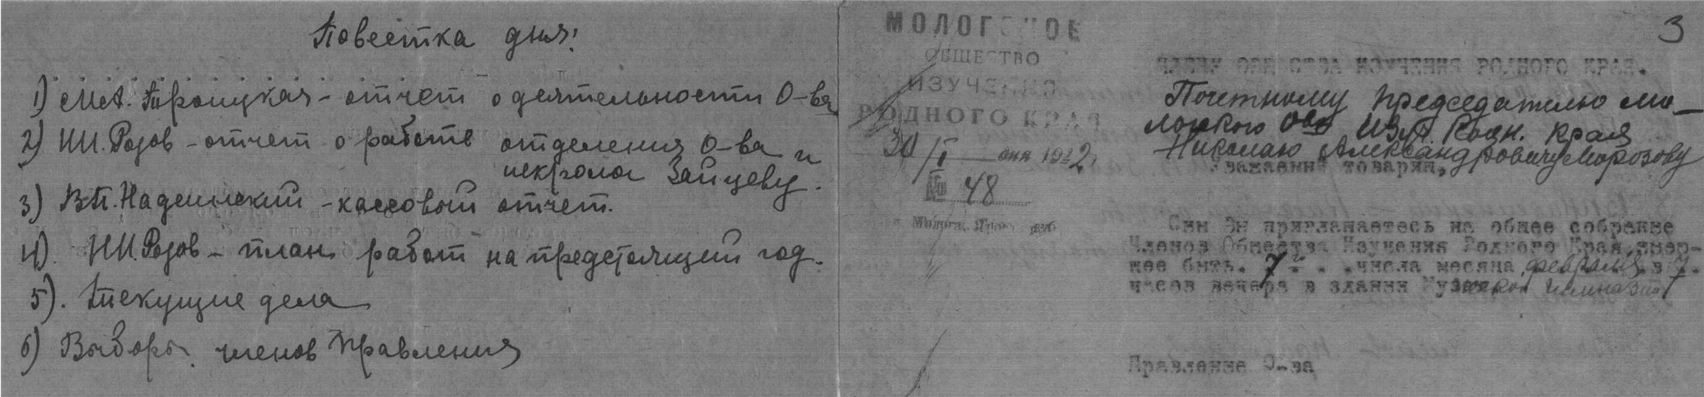 Повестка дня:
1) М.А. Троицкая - отчет о деятельности О-ва
2) Н.И. Розов - отчет о работе отделения О-ва и
некролог Зайцеву.
3) В.П. Надеинский - кассовый отчет.
4) Н.И. Розов - план работ на предстоящий год.
5). Текущие дела
6) Выборы членов Правления
3
МОЛОГСКОЕ
ОБЩЕСТВО
ИЗУЧЕНИЯ
РОДНОГО КРАЯ
30/I дня 1922
№ 48
г. Молога, Яросл. губ.
ЧЛЕНУ ОБЩЕСТВА ИЗУЧЕНИЯ РОДНОГО КРАЯ.
Почетному председателю мо-
логского О-ва Изуч. Родн. края
Николаю Александровичу Морозову
Уважаемый товарищ,
Сим Вы приглашаетесь на общее собрание
Членов Общества Изучения Родного Края, имер-
щее быть. 7го. числа месяца февраля в 7.
часов вечера в здании гимназии
Правление О-ва